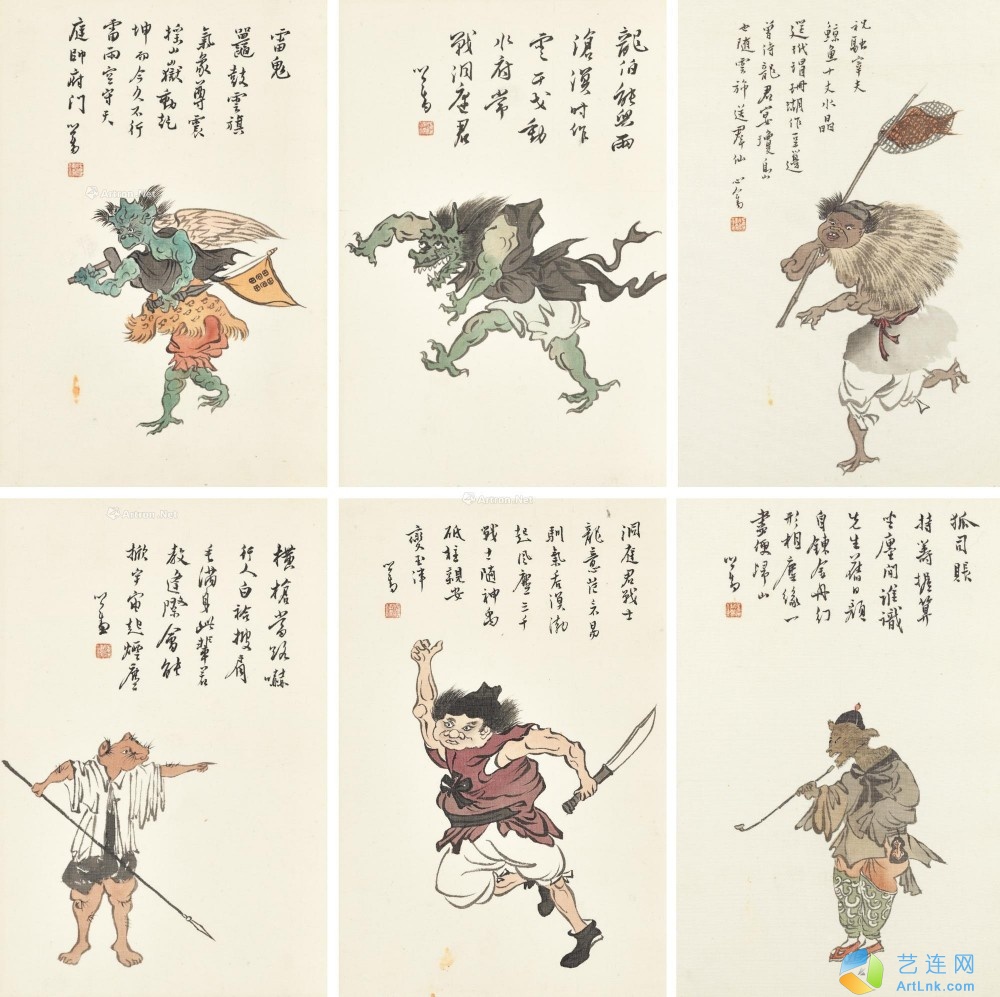 雷鬼
鼉鼓雲旗
氣象尊震
搖山嶽動乾
坤而今久不行
雷雨空守天
庭帥府門 心畬
龍伯能興雨
滄溟時作
雲干戈動
水府常
戰洞庭君
心畬
祝融宰夫
鯨魚十丈水晶
盤玳瑁珊瑚作豆籩
曾侍龍君宴瓊島
也隨雲旆送羣仙 心畬
橫槍當路嚇
行人白袷披肩
毛滿身此輩若
教逢際會能
掀宇宙起煙塵
心畬
洞庭君戰士
龍意 不易
馴氣吞溟渤
起風塵三千
戰士隨神禹
砥柱親安
玉津
心畬
狐司賬
持籌握算
坐塵間誰識
先生舊日顏
自鍊金丹幻
形相塵緣一
盡便歸山
心畬
Artron.Net
Artron.Net
Artron.Net
艺连网
ArtLnk.com